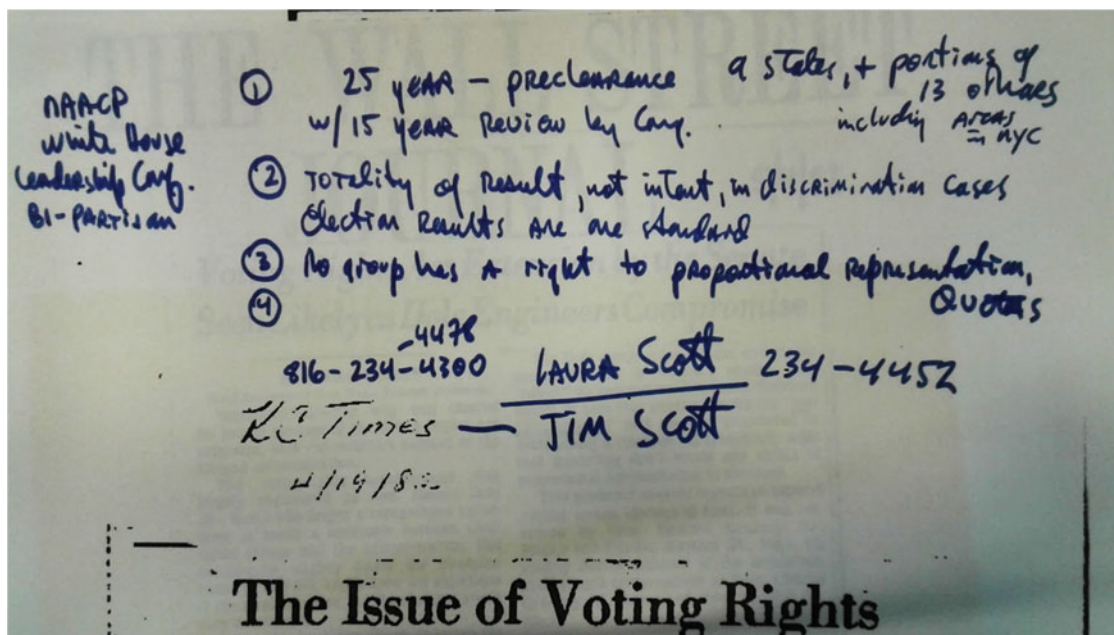 THE WALL STREET
JOURNAL
NAACP
White House
Leadership Conf.
BI-PARTISAN
① 25 YEAR – preclearance 9 states, + portions of
13 others
w/ 15 YEAR Review by Cong. including AREAS
in NYC
② TOTALITY of Result, not intent, in discrimination cases
Election Results are one standard
③ No group has A right to proportional Representation,
Quotas
④
-4478
816-234-4300 LAURA Scott 234-4452
KC Times — JIM Scott
4/19/82
The Issue of Voting Rights